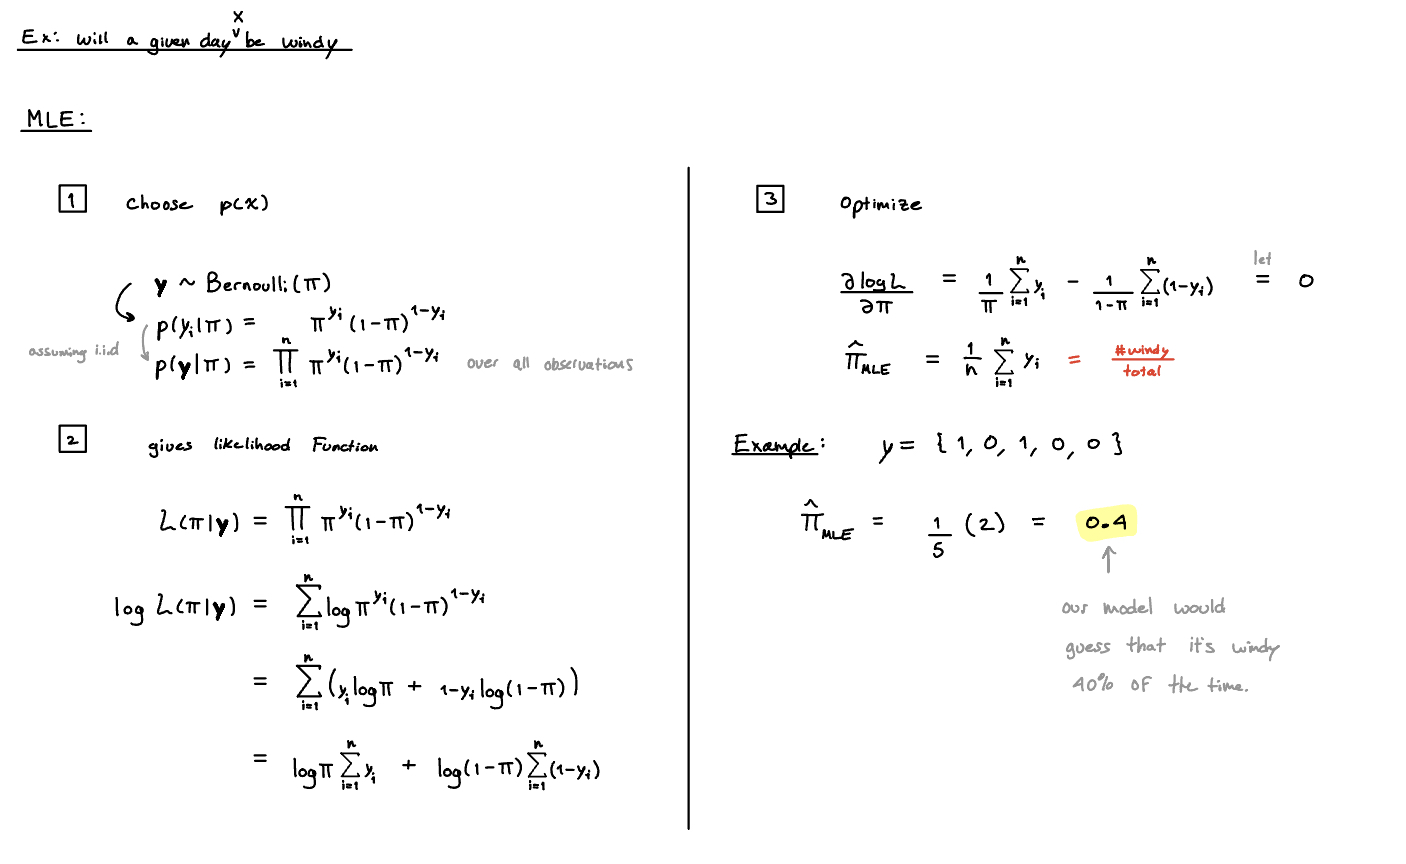 Ex: will a given day x be windy
MLE:
1 choose p(x)
y ~ Bernoulli(π)
p(yᵢ|π) = π^yᵢ (1-π)^1-yᵢ
assuming i.i.d
p(y|π) = ∏ᵢ₌₁ⁿ π^yᵢ (1-π)^1-yᵢ over all observations
2 gives likelihood Function
L(π|y) = ∏ᵢ₌₁ⁿ π^yᵢ (1-π)^1-yᵢ
log L(π|y) = ∑ᵢ₌₁ⁿ log π^yᵢ (1-π)^1-yᵢ
= ∑ᵢ₌₁ⁿ (yᵢ log π + 1-yᵢ log(1-π))
= log π ∑ᵢ₌₁ⁿ yᵢ + log(1-π) ∑ᵢ₌₁ⁿ (1-yᵢ)
3 optimize
∂logL/∂π = 1/π ∑ᵢ₌₁ⁿ yᵢ - 1/1-π ∑ᵢ₌₁ⁿ (1-yᵢ) let = 0
π̂ MLE = 1/n ∑ᵢ₌₁ⁿ yᵢ = #windy/total
Example: y = {1, 0, 1, 0, 0}
π̂ MLE = 1/5 (2) = 0.4
↑
our model would
guess that it's windy
40% of the time.